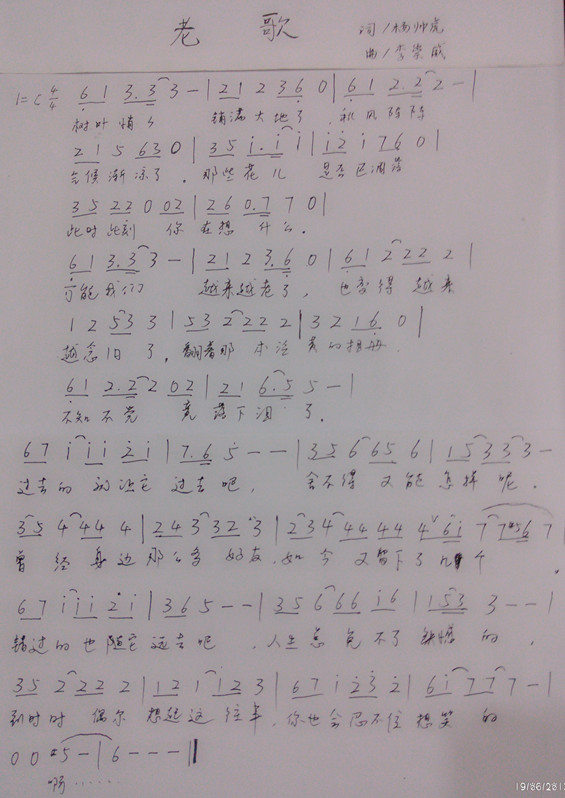 老 歌
词/杨帅虎
曲/李崇威
1=C 4/4 6 1 3.3 3 - | 2 1 2 3 6 0 | 6 1 2.2 2 - |
树叶悄悄 铺满大地了,秋风阵阵
2 1 5 6 3 0 | 3 5 i.i i | i 2 i 7 6 0 |
气候渐凉了,那些花儿 是否已凋落
3 5 2 2 0 0 2 | 2 6 0.7 7 0 |
此时此刻 你在想 什么.
6 1 3.3 3 - | 2 1 2 3.6 0 | 6 1 2 2 2 2 |
可能我们 越来越老了, 也变得 越来
1 2 5 3 3 | 5 3 2 2 2 2 | 3 2 1 6 0 |
越念旧了,翻着那本泛黄的相册.
6 1 2.2 2 0 2 | 2 1 6.5 5 - |
不知不觉 竟落下泪了.
6 7 i i i 2 i | 7.6 5 - - | 3 5 6 6 5 6 | 1 5 3 3 3 -
过去的 就让它 过去吧, 舍不得 又能怎样呢.
3 5 4 4 4 4 | 2 4 3 3 2 3 | 2 3 4 4 4 4 4 4 6 i 7 7 #5 6 7
曾经身边那么多好友,如今又留下了几个.
6 7 i i i 2 i | 3 6 5 - - | 3 5 6 6 6 i 6 | 1 5 3 3 - - |
错过的也随它远去吧,人生总免不了缺憾的.
3 5 2 2 2 2 | 1 2 1 1 2 3 | 6 7 i 2 3 2 | 6 i 7 7 7 - |
到时时 偶尔想起这往事,你也会忍不住想笑的
0 0 #5 - | 6 - - - ‖
啊……